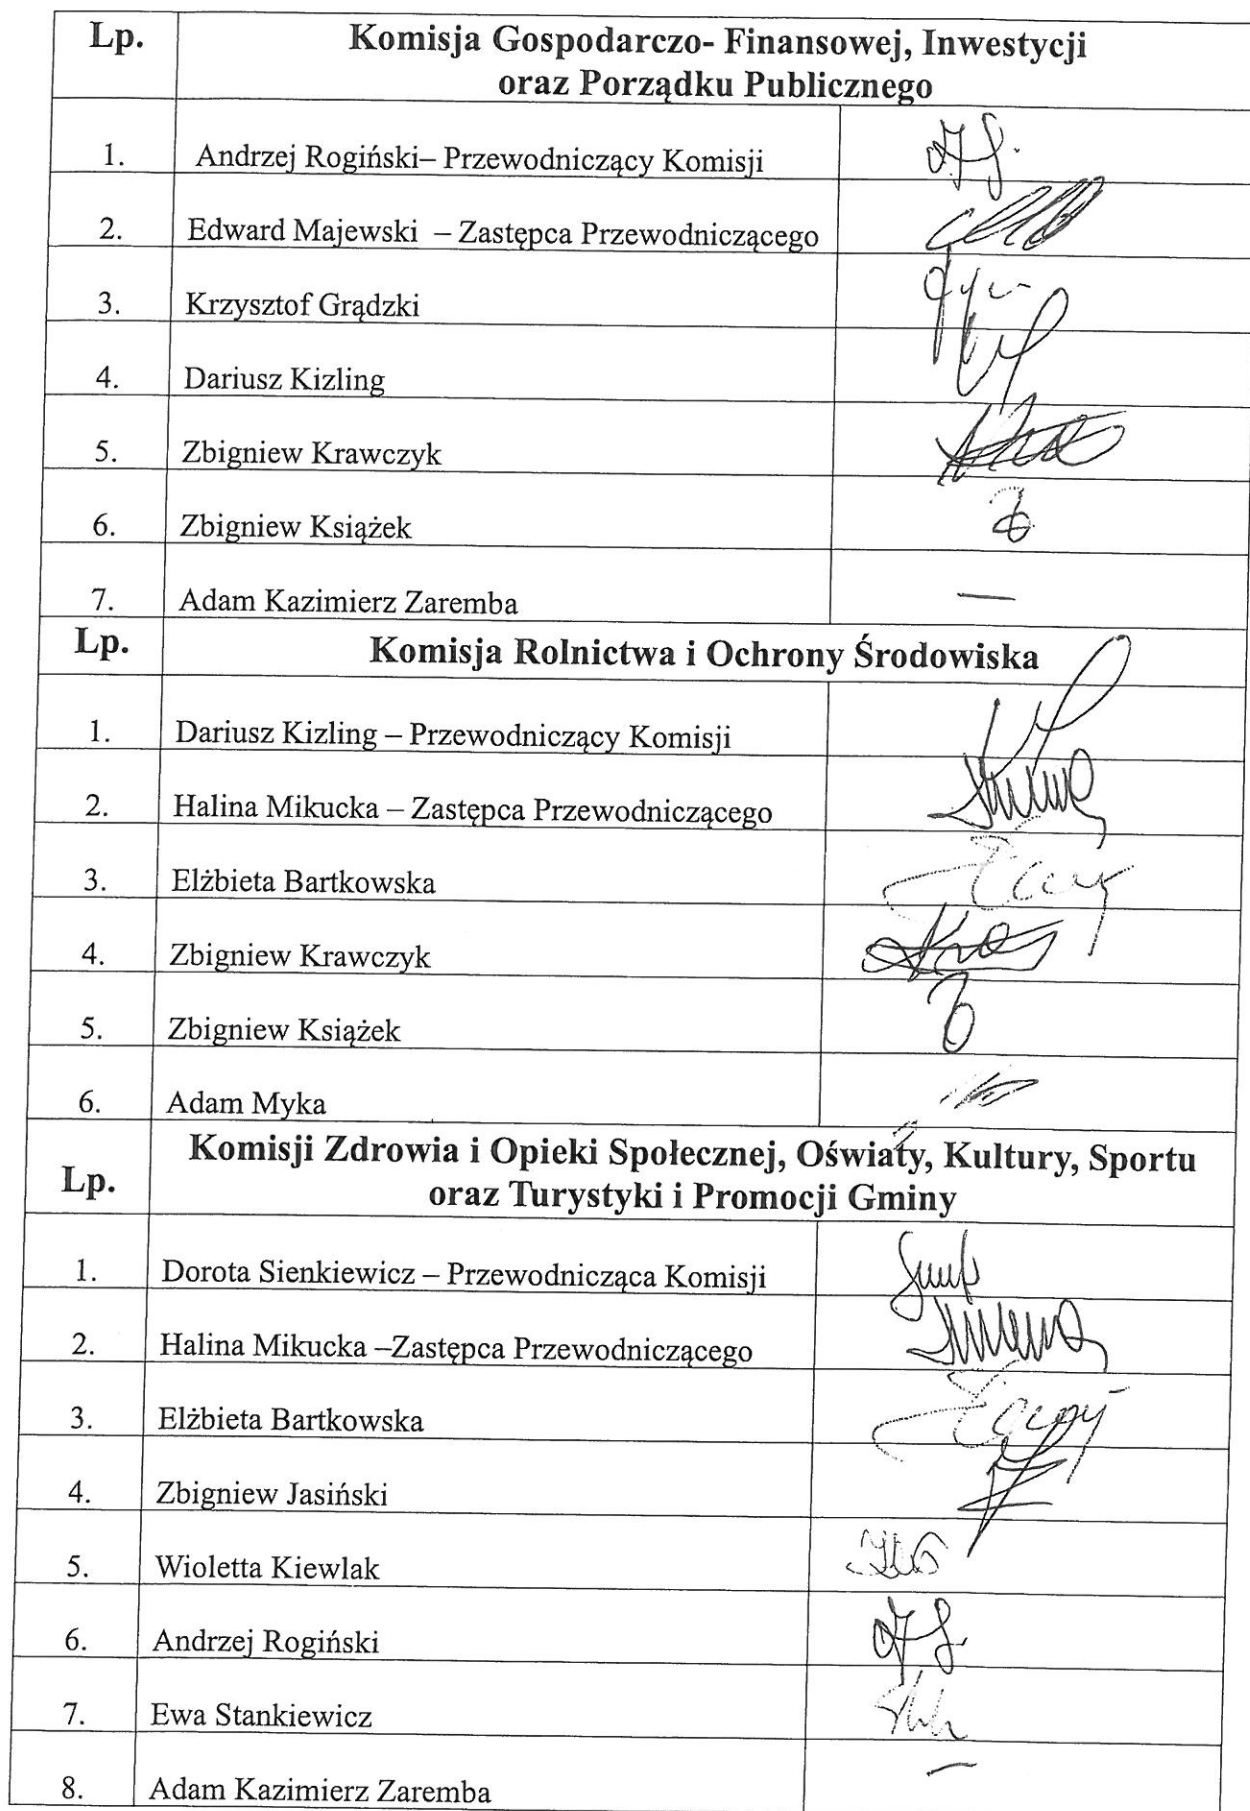 Lp. Komisja Gospodarczo- Finansowej, Inwestycji
oraz Porządku Publicznego
1. Andrzej Rogiński– Przewodniczący Komisji
2. Edward Majewski – Zastępca Przewodniczącego
3. Krzysztof Grądzki
4. Dariusz Kizling
5. Zbigniew Krawczyk
6. Zbigniew Książek
7. Adam Kazimierz Zaremba —
Lp. Komisja Rolnictwa i Ochrony Środowiska
1. Dariusz Kizling – Przewodniczący Komisji
2. Halina Mikucka – Zastępca Przewodniczącego
3. Elżbieta Bartkowska
4. Zbigniew Krawczyk
5. Zbigniew Książek
6. Adam Myka
Lp. Komisji Zdrowia i Opieki Społecznej, Oświaty, Kultury, Sportu
oraz Turystyki i Promocji Gminy
1. Dorota Sienkiewicz – Przewodnicząca Komisji
2. Halina Mikucka –Zastępca Przewodniczącego
3. Elżbieta Bartkowska
4. Zbigniew Jasiński
5. Wioletta Kiewlak
6. Andrzej Rogiński
7. Ewa Stankiewicz
8. Adam Kazimierz Zaremba —